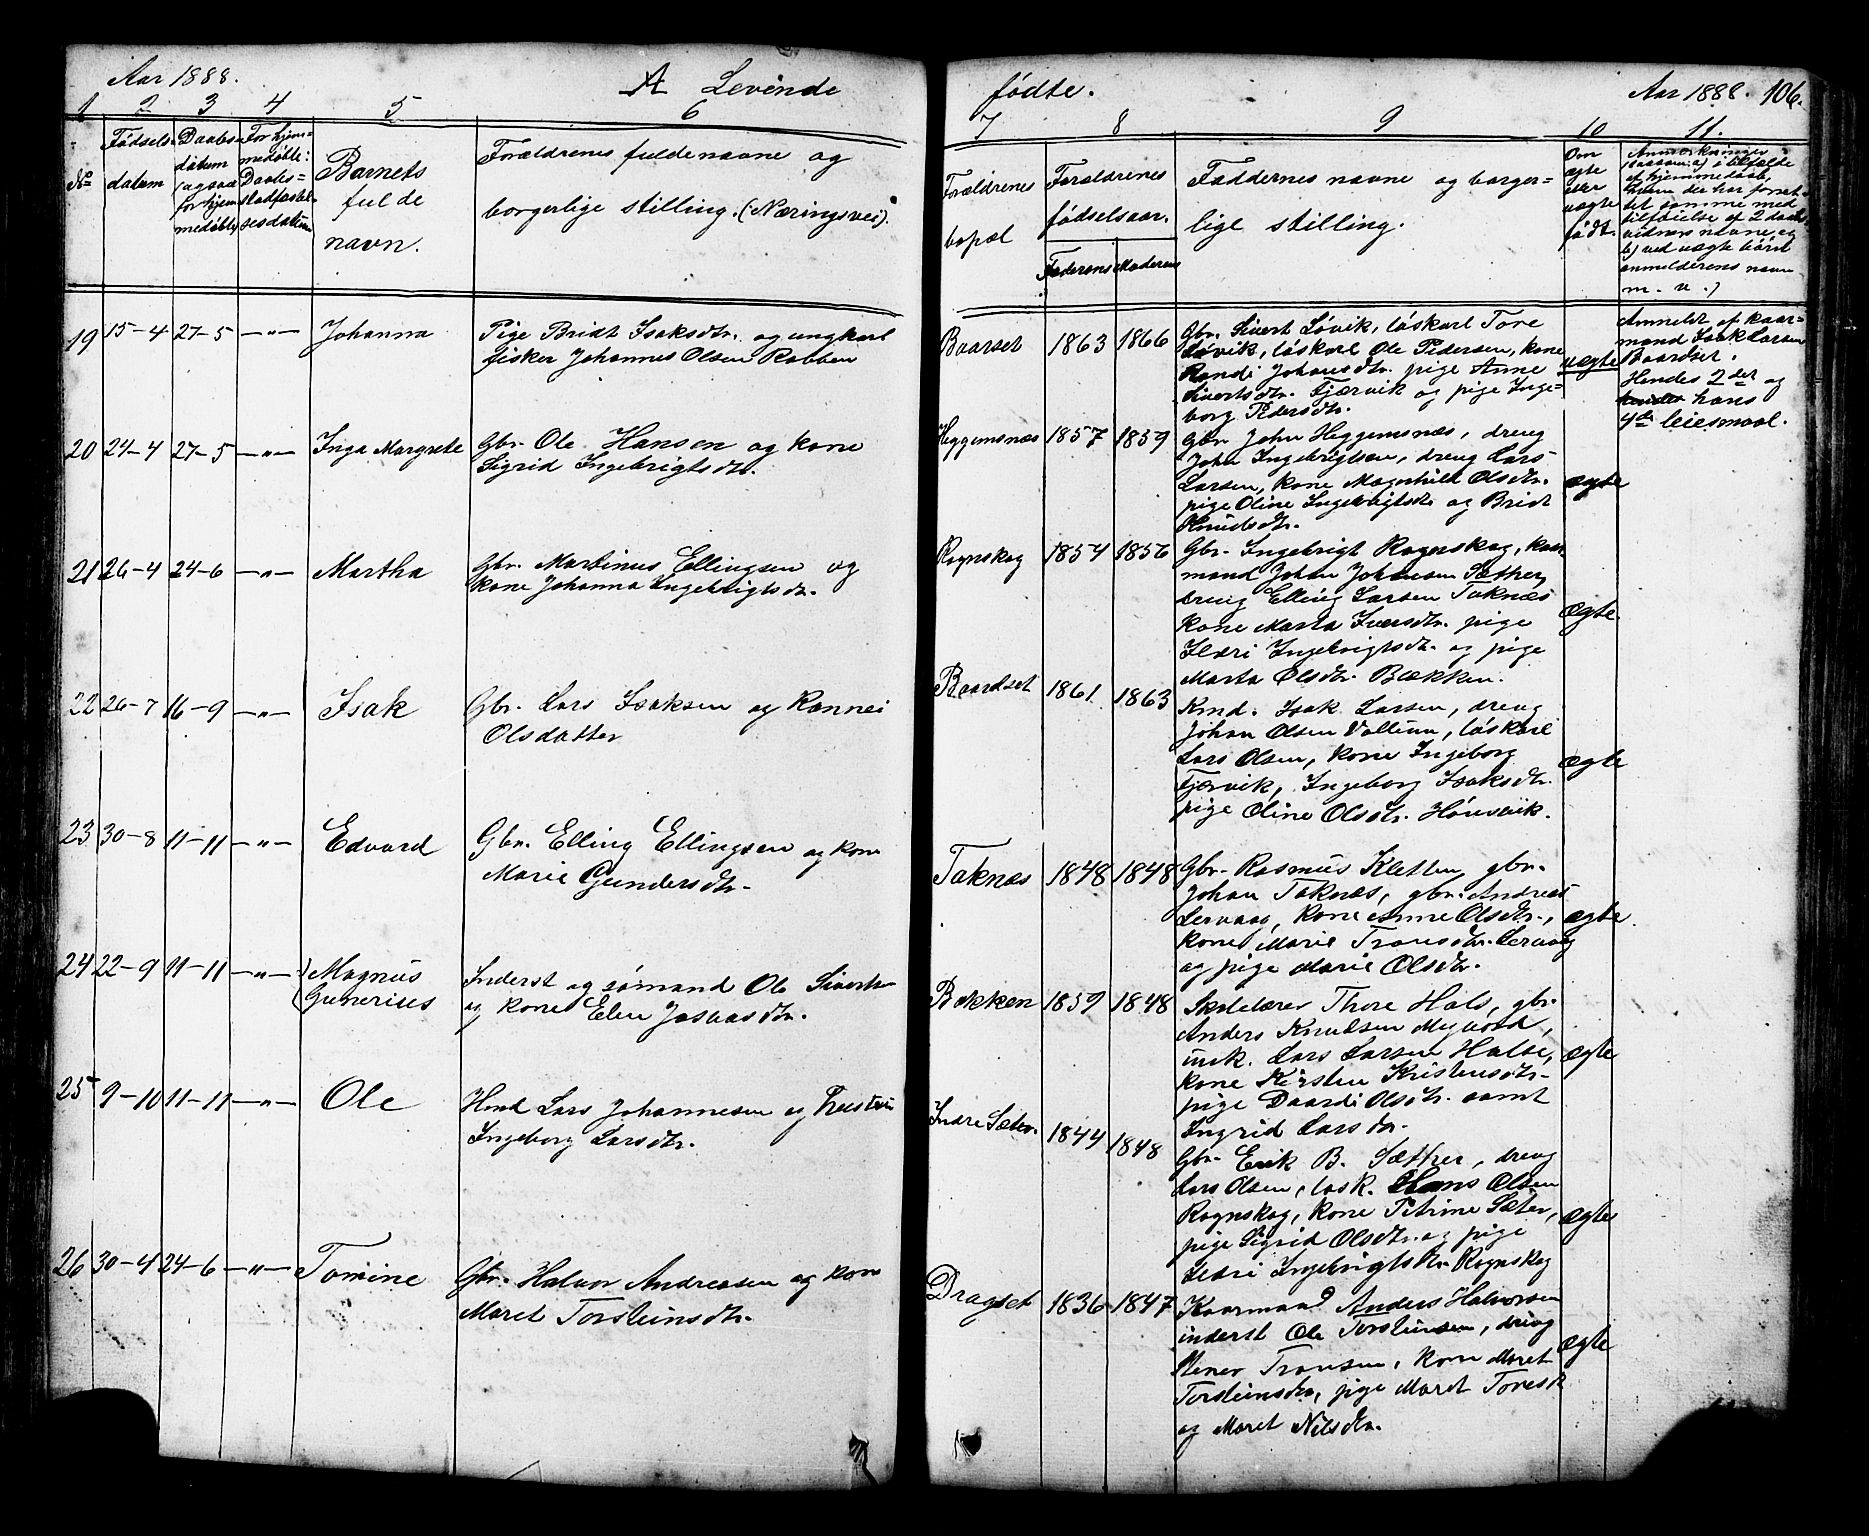 Aar 1888.
A Levende
1 2 3 4 5 6
No
Fødsels-
datum
Daabs-
datum
(ogsaa
for hjem
medøbte
For hjem-
medøbte:
Daabs-
stadfæstel-
sesdatum
Barnets
fulde
navn.
Forældrenes fulde navne og
borgerlige stilling. (Næringsvei).
19 15-4 27-5 -"- Johanna Pige Bridt Isaksdtr. og ungkarl
fisker Johannes Olsen Rabben
20 24-4 27-5 -"- Inga Margrete Gbr. Ole Hansen og kone
Sigrid Ingebrigtsdtr.
21 26-4 24-6 -"- Martha Gbr. Martinus Ellingsen og
kone Johanna Ingebrigtsdtr.
22 26-7 16-9 -"- Isak Gbr. Lars Isaksen og Rannei
Olsdatter
23 30-8 11-11 -"- Edvard Gbr. Elling Ellingsen og kone
Marie Gundersdtr.
24 22-9 11-11 -"- Magnus Inderst og sømand Ole Sivertsen
Gunerius og kone Elen
25 9-10 11-11 -"- Ole Hmd Lars Johannesen og
Ingeborg Larsdtr.
26 30-4 24-6 -"- Tomine Gbr. Halvor Andreasen og kone
Maret Torsteinsdtr.
fødte.
Aar 1888. 106.
7 8 9 10 11.
Forældrenes
bopæl
Forældrenes
fødselsaar.
Faderens Moderens
Faddernes navne og borger-
lige stilling.
Om
ægte
eller
uægte
født.
Anmerkninger
(saasom: a) i tilfælde
af hjemmedaab,
hvem der har forret-
tet samme med
tilføielse af 2 daabs
vidners navne, og
b) ved uægte børn
anmelderens navn
m. v.)
Baarset 1863 1866 Gbr. Sivert Løvik, løskarl Tore
Løvik, løskarl Ole Pedersen, kone
Randi Johansdtr. pige Anne
Sivertsdtr. Fjærvik og pige Inge-
borg Pedersdtr.
uægte
Anmeldt af kaar-
mand Isak Larsen
Baardset.
Hendes 2der og
hans
4de leiesmaal.
Heggemsnæs 1857 1859 Gbr. John Heggemsnæs, dreng
John Ingebrigtsen, dreng Lars
Larsen, kone Magnhild Olsdtr.
pige Oline Ingebrigtsdtr og Bridt
Knudsdtr.
ægte
Rognskog 1854 1856 Gbr. Ingebrigt Rognskog, kaar
mand Johan Johansen Sæther,
dreng Elling Larsen Taknæs
kone Marta Iversdtr. pige
Ildri Ingebrigtsdtr. og pige
Marta Olsdtr. Bækken.
Ægte.
Baardset 1861. 1863 Kmd. Isak Larsen, dreng
Johan Olsen Vullum, løskarl
Lars Olsen, kone Ingeborg
Fjærvik, Ingeborg Isaksdtr.
pige Oline Olsdtr.
Ægte
Taknæs 1848 1848 Gbr. Rasmus Kletten, gbr.
Johan Taknæs, gbr. Andreas
Lervaag, kone Anne Olsdtr.,
kone Marie Tronsdtr. Lervaag
og pige Marie Olsdtr.
Ægte.
Bækken 1859 1848 Skolelærer Thore Hals, gbr.
Anders Knudsen Myrvold,
unk. Lars Larsen Halse,
kone Kirsten Kristensdtr.
pige Olsdtr. samt
Ingrid Larsdtr.
Ægte
Indre Sæter. 1844 1848 Gbr. Erik B. Sæther, dreng
Lars Olsen, løsk. Hans Olsen
Rognskog, kone Petrine Sæter,
pige Sigrid Olsdtr. og pige
Ildri Ingebrigtsdtr. Rognskog
Ægte
Dragset 1836 1847 Kaarmand Anders Halvorsen
inderst Ole Torsteinsen, dreng
Tronsen, kone Maret
Torsteinsdtr, pige Maret
og Maret Nilsdtr.
Ægte